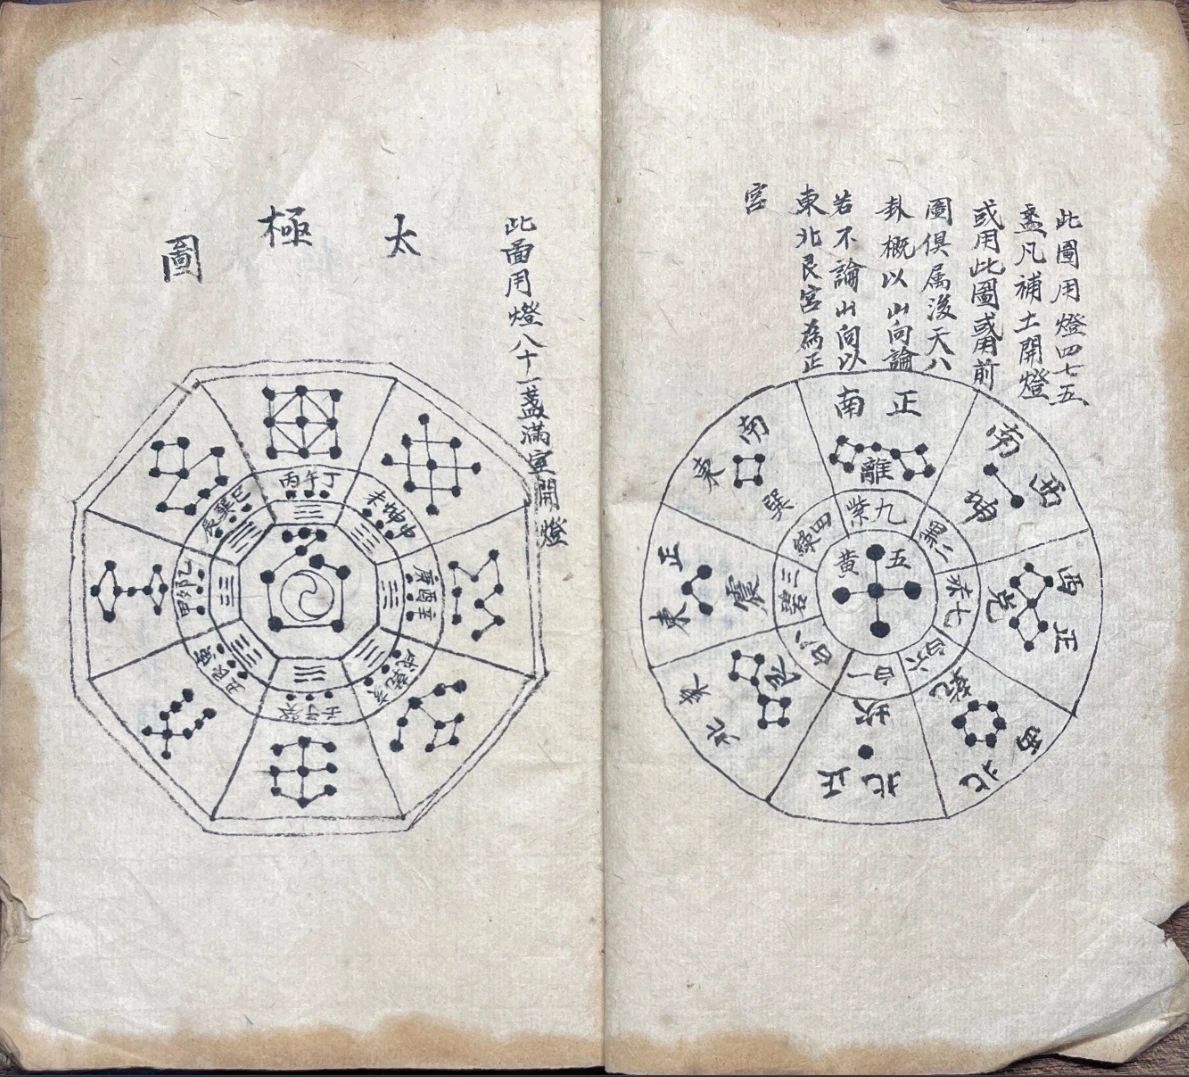 此圖用燈四七五
盞凡補土開燈
或用此圖或用前
圖俱属後天八
卦概以山向論
若不論山向以
東北艮宮為正
宮
正南
離
九紫
西南
坤
二黑
正西
兑
七赤
西北
乾
六白
正北
坎
一白
東北
艮
八白
正東
震
三碧
東南
巽
四綠
五黄
此圖用燈八十一盞滿堂開燈
太極圖
丙午丁
未坤申
庚酉辛
戌乾亥
壬子癸
丑艮寅
甲卯乙
辰巽巳